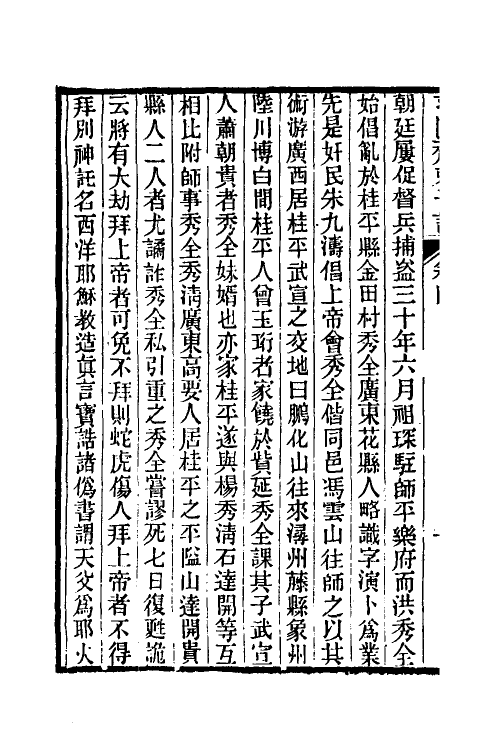 朝廷屢促督兵捕盜三十年六月祖琛駐師平樂府而洪秀全
始倡亂於桂平縣金田村秀全廣東花縣人略識字演卜為業
先是奸民朱九濤倡上帝會秀全偕同邑馮雲山往師之以其
術游廣西居桂平武宣之交地曰鵬化山往來潯州藤縣象州
陸川博白間桂平人曾玉珩者家饒於貲延秀全課其子武宣
人蕭朝貴者秀全妹婿也亦家桂平遂與楊秀淸石達開等互
相比附師事秀全秀淸廣東高要人居桂平之平隘山達開貴
縣人二人者尤譎詐秀全私引重之秀全嘗謬死七日復甦詭
云將有大劫拜上帝者可免不拜則蛇虎傷人拜上帝者不得
拜別神託名西洋耶穌教造眞言寶誥諸僞書謂天父爲耶火